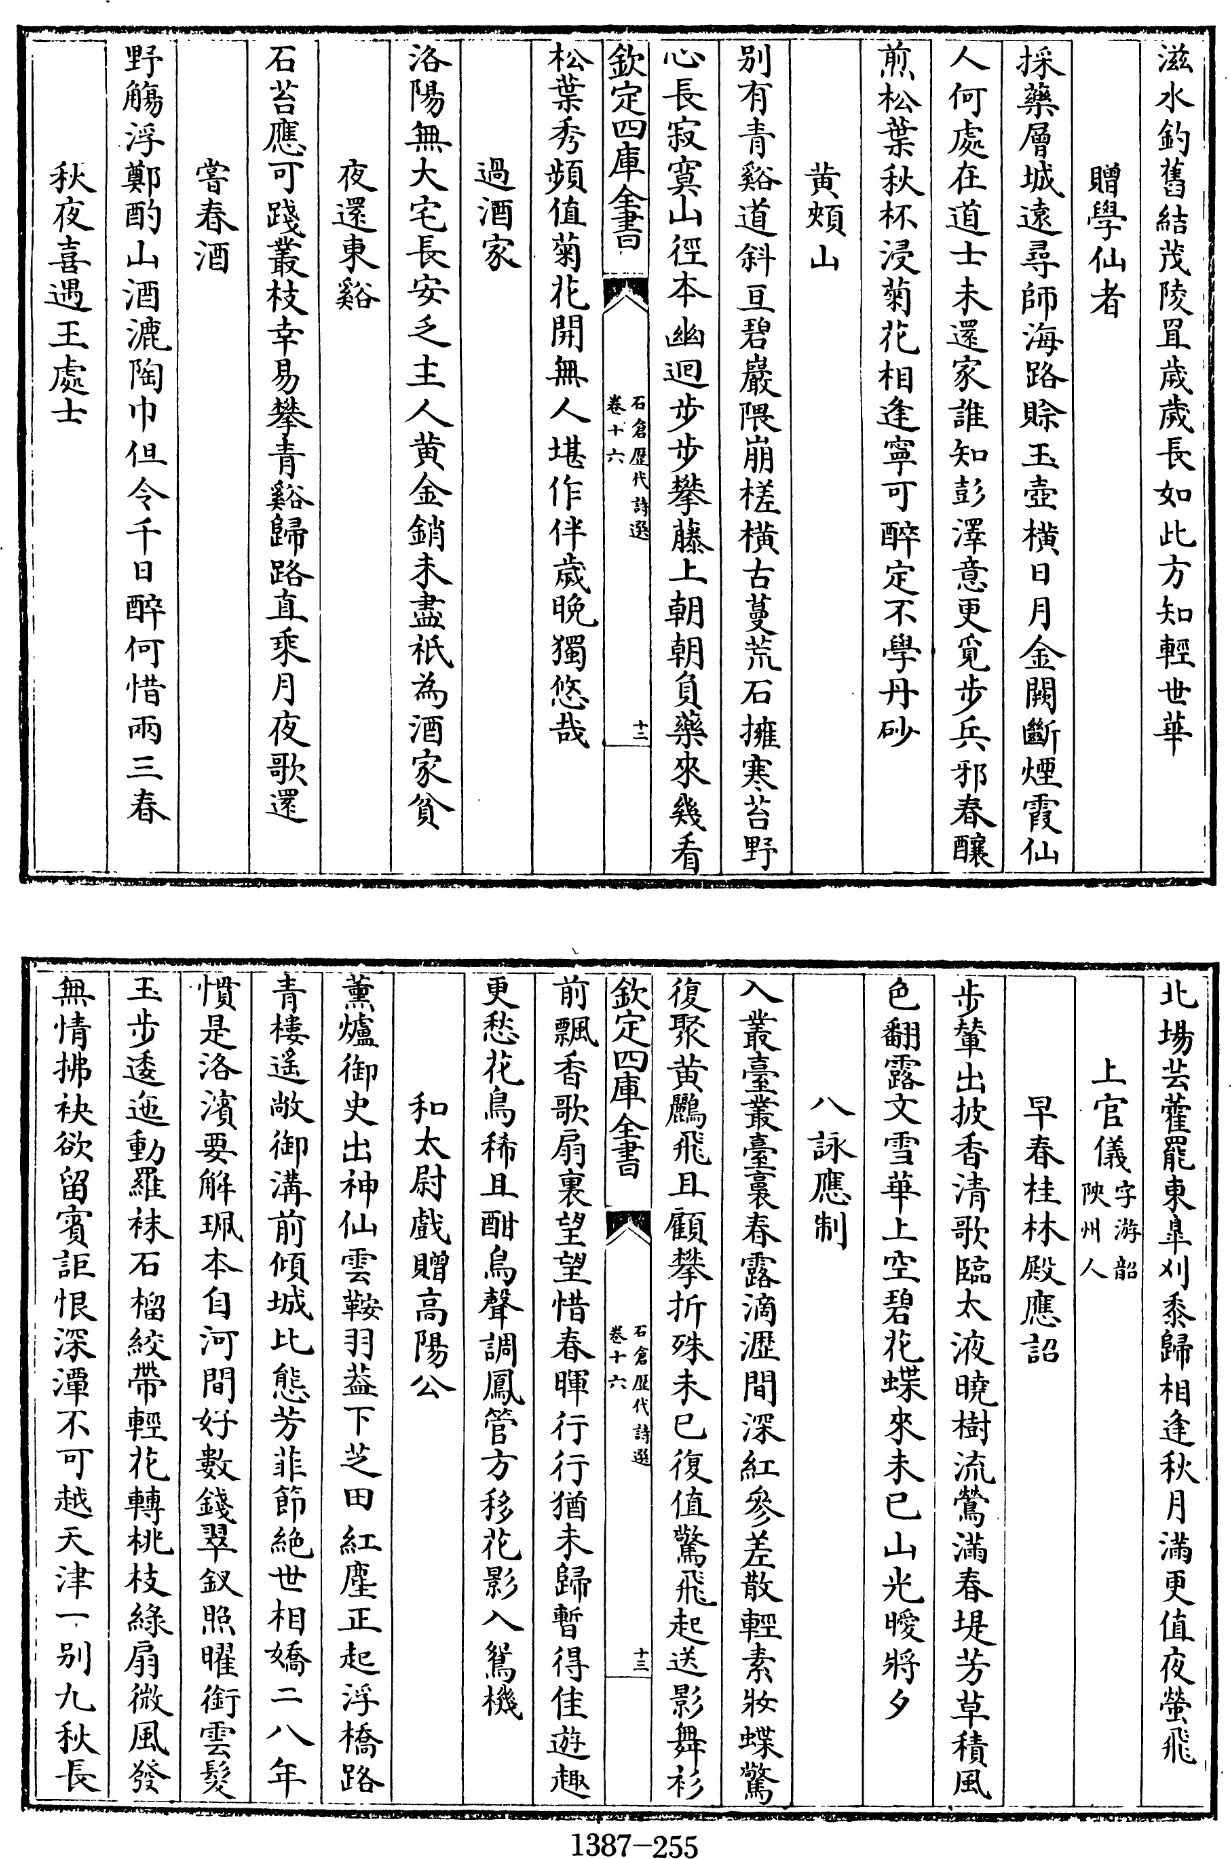 滋水釣舊結茂陵罝歳歲長如此方知輕世華
贈學仙者
採藥層城逺尋師海路賒玉壺橫日月金闕斷煙霞仙
人何處在道士未還家誰知彭澤意更覓步兵邪春釀
煎松葉秋杯浸菊花相逢寜可醉定不學丹砂
黄頰山
别有青谿道斜亘碧巖隈崩槎横古蔓荒石擁寒苔野
心長寂寞山徑本幽迥步步攀藤上朝朝負藥來幾看
欽定四庫全書
石倉歴代詩選
卷十六
十二
松葉秀頻值菊花開無人堪作伴歲晚獨悠哉
過酒家
洛陽無大宅長安乏主人黄金銷未盡祇為酒家貧
夜還東谿
石苔應可踐叢枝幸易攀青谿歸路直乘月夜歌還
嘗春酒
野觴浮鄭酌山酒漉陶巾但令千日醉何惜兩三春
秋夜喜遇王處士
北場芸藿罷東臯刈黍歸相逢秋月滿更值夜螢飛
上官儀字游韶
陜州人
早春桂林殿應詔
步輦出披香清歌臨太液曉樹流鶯滿春堤芳草積風
色翻露文雪華上空碧花蝶來未已山光曖將夕
八詠應制
入叢臺叢臺裏春露滴瀝間深紅參差散輕素妝蝶驚
復聚黄鸝飛且顧攀折殊未已復值驚飛起送影舞衫
欽定四庫全書
石倉歴代詩選
卷十六
十三
前飄香歌扇裏望望惜春暉行行猶未歸暫得佳遊趣
更愁花鳥稀且酣鳥聲調鳳管方移花影入鴛機
和太尉戲贈高陽公
薰爐御史出神仙雲鞍羽葢下芝田紅塵正起浮橋路
青樓遥敞御溝前傾城比態芳菲節絶世相嬌二八年
慣是洛濱要解珮本自河間好數錢翠釵照曜銜雲髮
玉步逶迤動羅袜石榴絞帶輕花轉桃枝綠扇微風發
無情拂袂欲留賓詎恨深潭不可越天津一别九秋長
1387-255